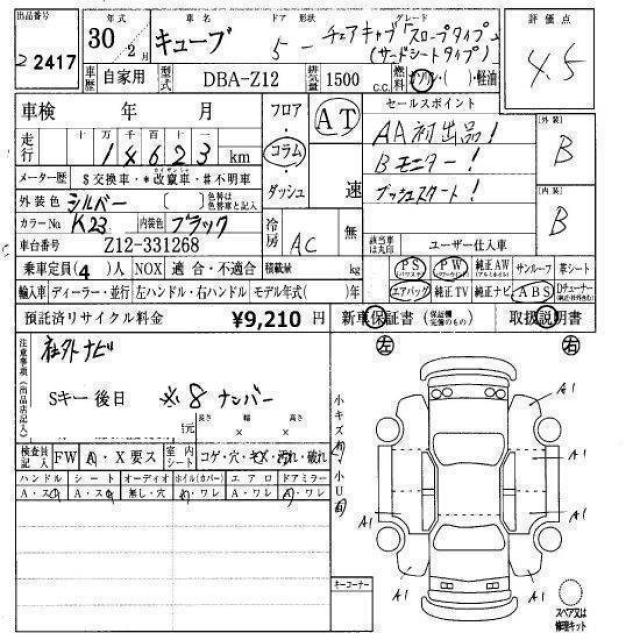 出品番号
2 2417
年式
30 2月
車名
キューブ
ドア 形状
5 -
グレード
チェアキャブ「スロープタイプ」
(サードシートタイプ)
評価点
4.5
車歴 自家用
型式 DBA-Z12
排気量 1500 C.C.
燃料 ガソリン・( )・軽油
車検 年 月
走行 十万千百十一
14623 km
メーター歴 $交換車・*改竄車・#不明車
外装色 シルバー [ ] 色替は色替車と記入
カラーNo K23 内装色 ブラック
車台番号 Z12-331268
乗車定員(4)人 NOX 適合・不適合 積載量 kg
輸入車 ディーラー・並行 左ハンドル・右ハンドル モデル年式( )年
預託済リサイクル料金 ¥9,210 円
フロア・コラム・ダッシュ
AT 速
冷房 AC 無
セールスポイント
AA初出品!
Bモニター!
プッシュスタート!
該当車は丸印 ユーザー仕入車
[外装]
B
[内装]
B
PS PW 純正AW サンルーフ 革シート
エアバッグ 純正TV 純正ナビ ABS Dチューナー
新車保証書 (保証欄完備のもの) 取扱説明書
注意事項(出品店記入)
社外ナビ
Sキー後日 ※8ナンバー
長さ 幅 高さ
元 × ×
検査員記入 FW A・X要ス 室内シート コゲ・穴・キズ・汚れ・破れ
ハンドル シート オーディオ ホイル(カバー) エアロ ドアミラー
A・スレ A・スレ 無し・穴 A・ワレ A・ワレ A・ワレ
小キズ有・小U有
キーコーナー
左 右
A1
A1
A1
A1
A1
A1
スペア又は
修理キット